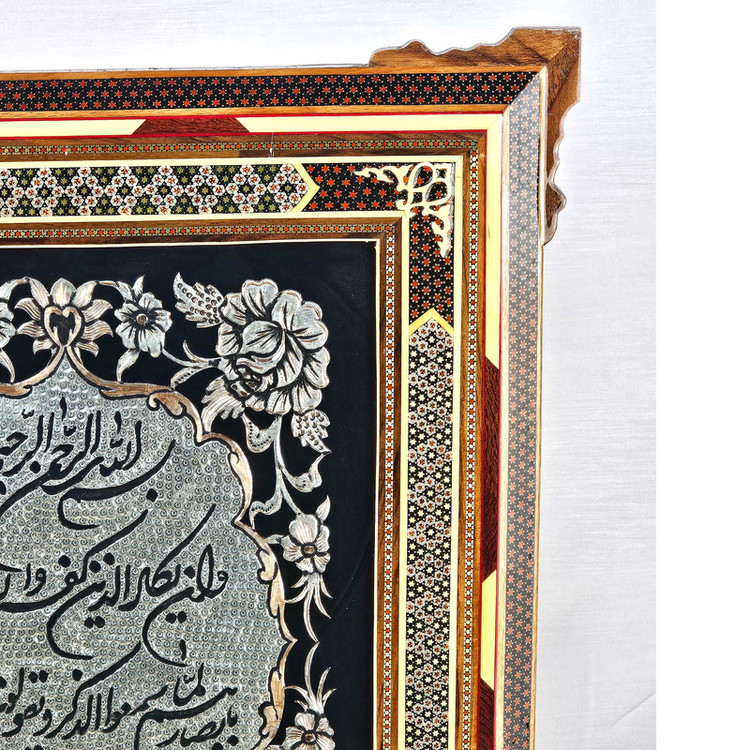 الله الرحمن الرحیم
وان یکاد الذین کفروا
بابصارهم لما سمعوا الذکر ویقولون